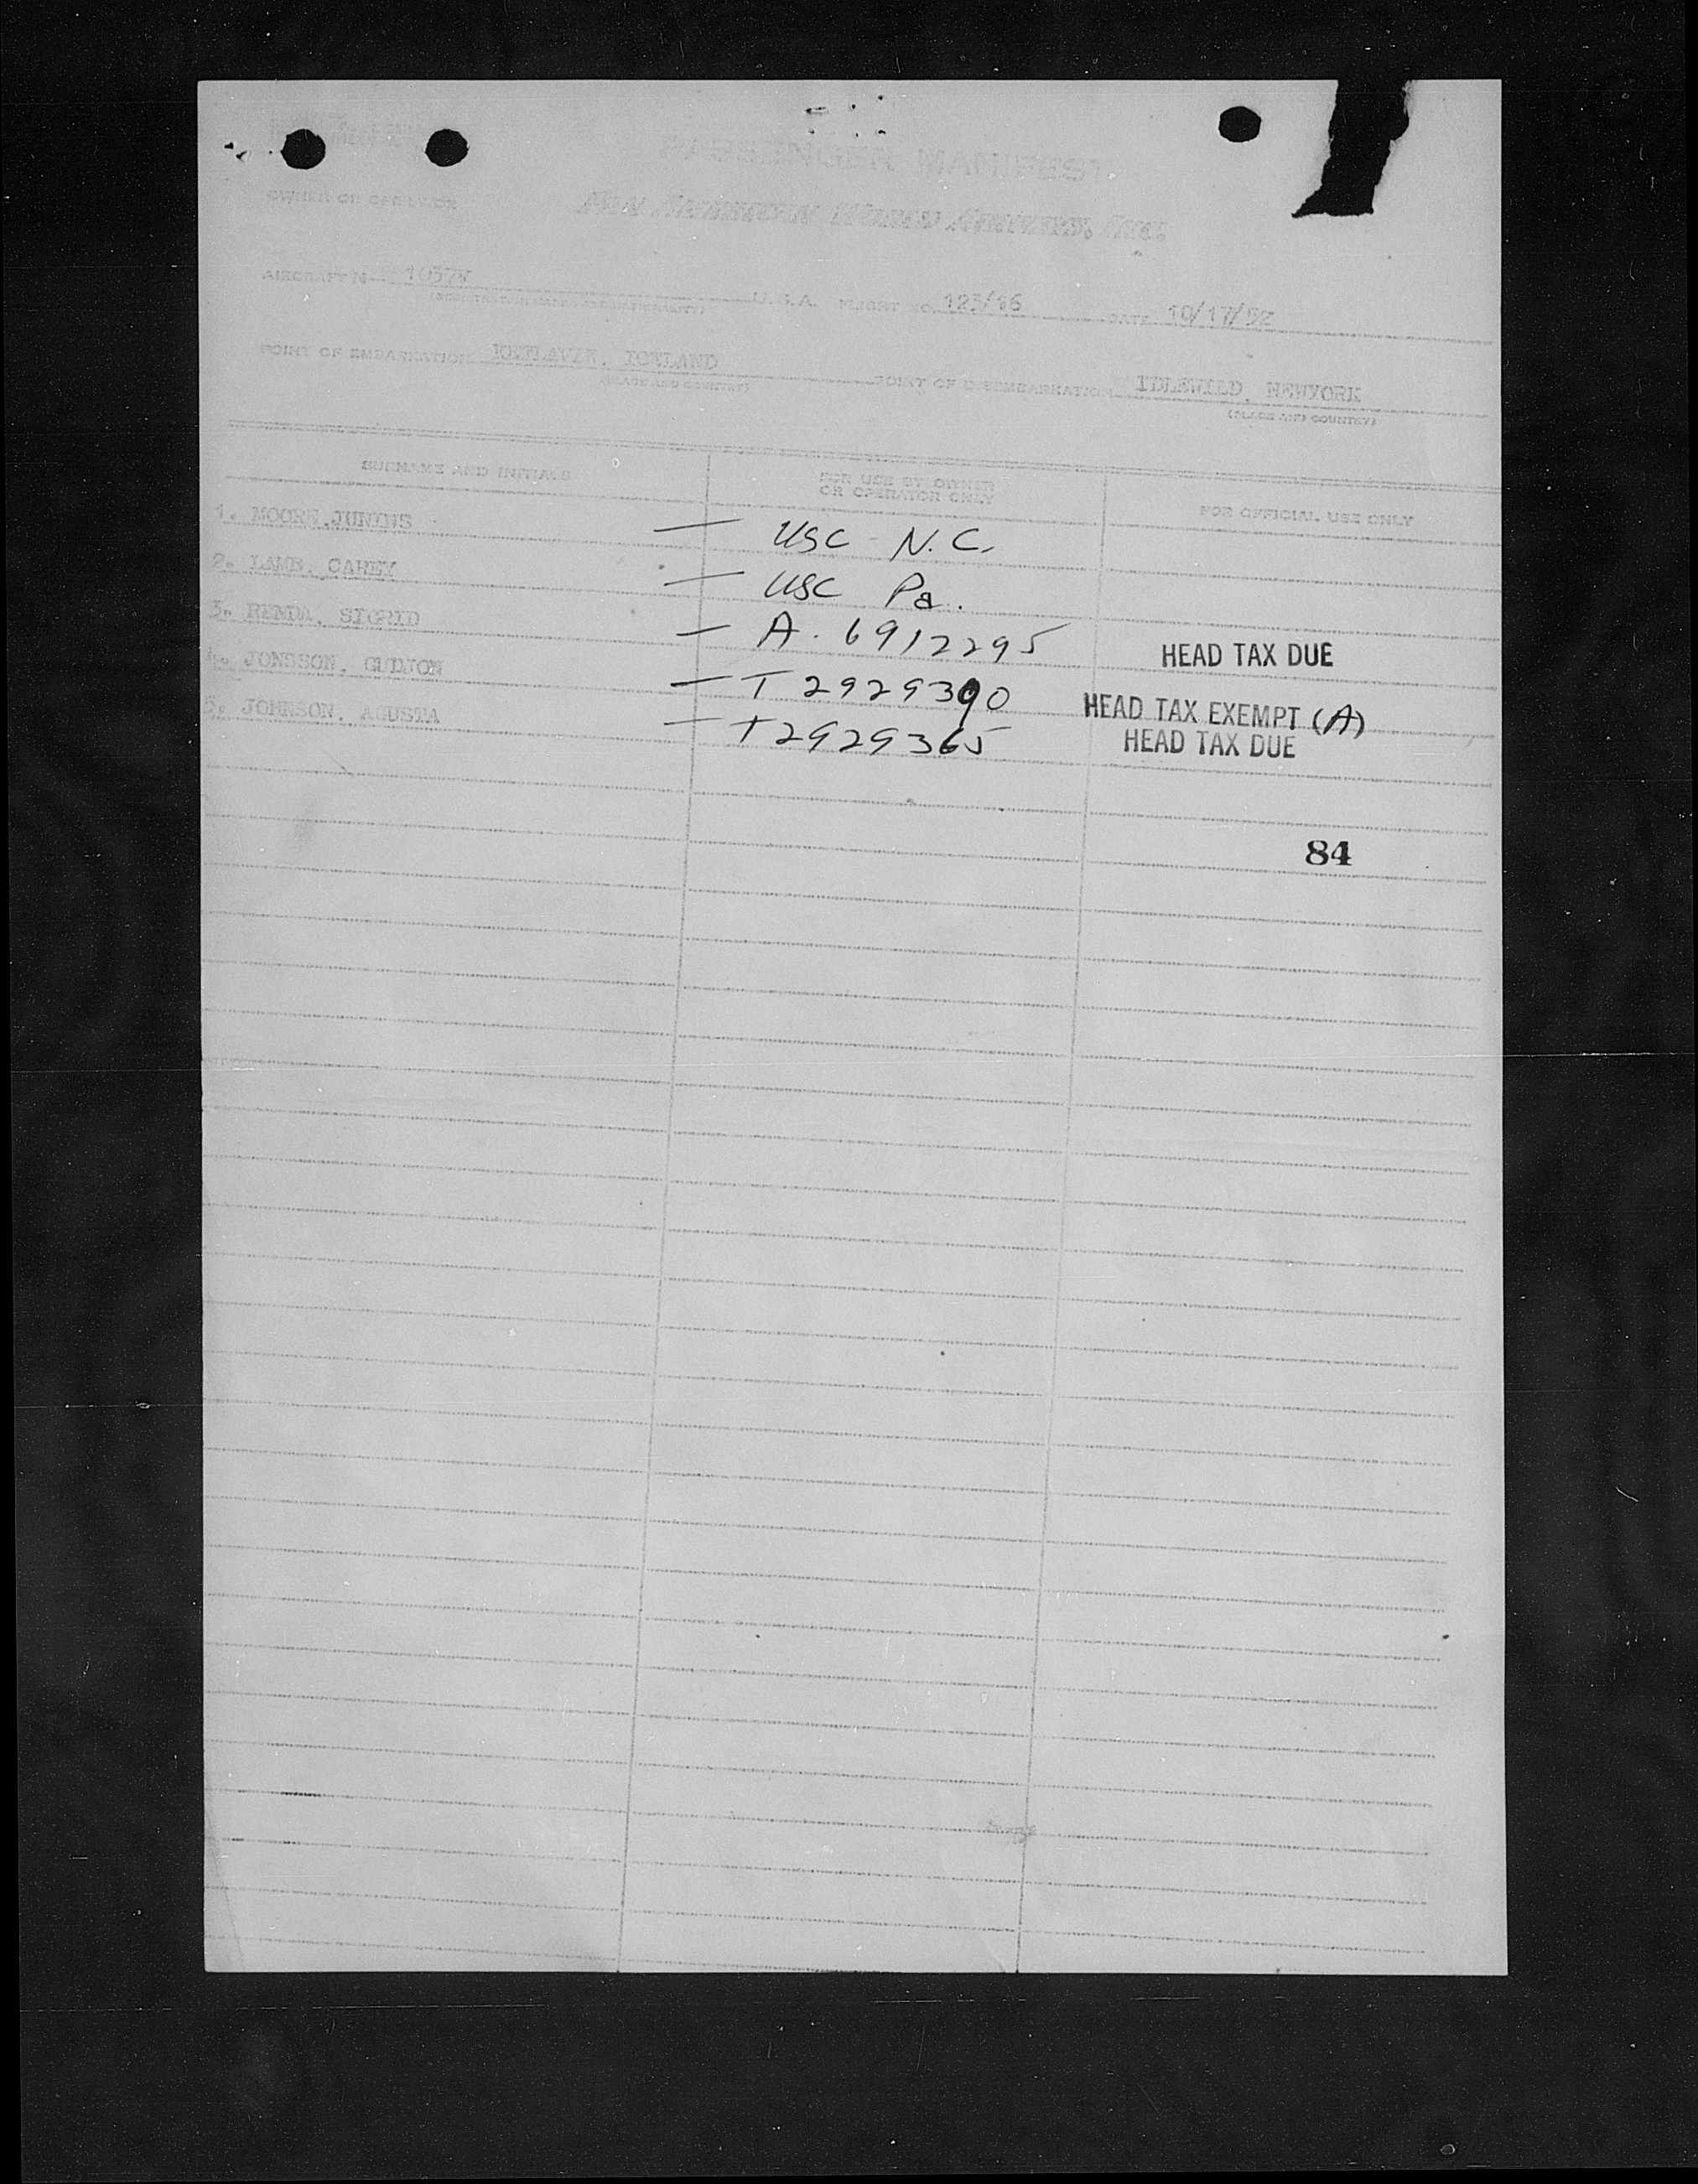 PASSENGER MANIFEST
OWNER OR OPERATOR PAN AMERICAN WORLD AIRWAYS, INC.
AIRCRAFT No. 1037V U.S.A. FLIGHT NO. 123/16 DATE 10/17/52
POINT OF EMBARKATION KEFLAVIK, ICELAND POINT OF DISEMBARKATION IDLEWILD, NEWYORK
(PLACE AND COUNTRY) (PLACE AND COUNTRY)
SURNAME AND INITIALS FOR USE BY OWNER OR OPERATOR ONLY FOR OFFICIAL USE ONLY
1. MOORE, JUNIUS — USC - N.C.
2. LAMB, CAREY — USC Pa.
3. RENDA, SIGRID — A. 6912295 HEAD TAX DUE
4. JONSSON, GUDJON — T 2929390 HEAD TAX EXEMPT (A)
5. JOHNSON, AGUSTA — T2929365 HEAD TAX DUE
84